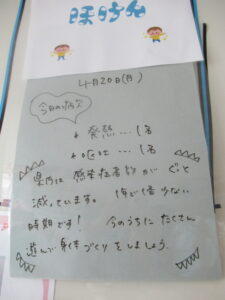 4月20日(月)
今日の病欠
* 発熱…1名
* 嘔吐…1名
県内は感染症者数がぐっと
減っています。 1年で1番少ない
時期です! 今のうちにたくさん
遊んで身体づくりをしましょう